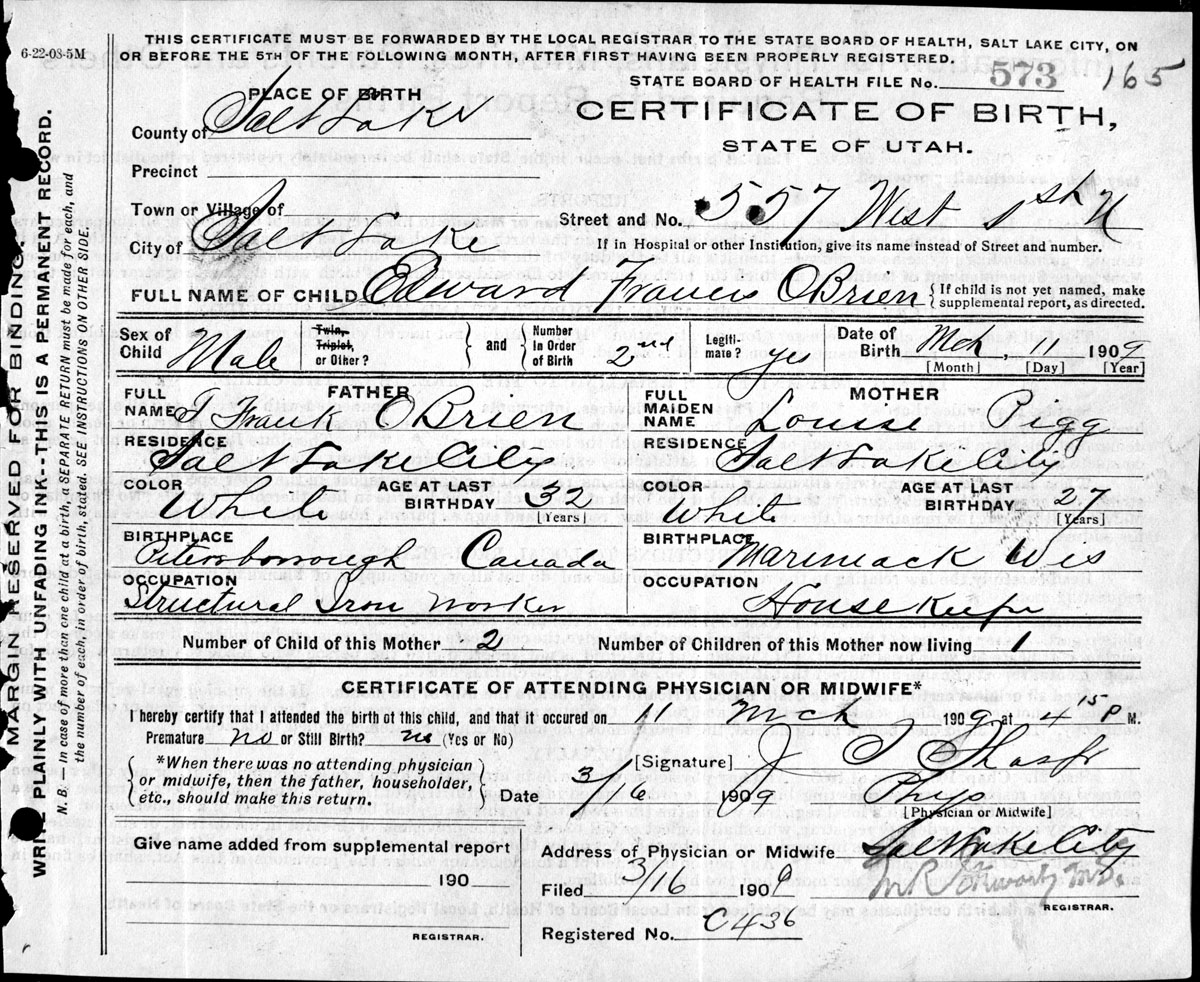 6-22-08-5M
THIS CERTIFICATE MUST BE FORWARDED BY THE LOCAL REGISTRAR TO THE STATE BOARD OF HEALTH, SALT LAKE CITY, ON
OR BEFORE THE 5TH OF THE FOLLOWING MONTH, AFTER FIRST HAVING BEEN PROPERLY REGISTERED.
STATE BOARD OF HEALTH FILE No. 573 165
MARGIN RESERVED FOR BINDING.
WRITE PLAINLY WITH UNFADING INK--THIS IS A PERMANENT RECORD.
N. B. — In case of more than one child at a birth, a SEPARATE RETURN must be made for each, and
the number of each, in order of birth, stated. SEE INSTRUCTIONS ON OTHER SIDE.
PLACE OF BIRTH
CERTIFICATE OF BIRTH,
STATE OF UTAH.
County of Salt Lake
Precinct
Town or Village of
Street and No. 557 West 1st N
City of Salt Lake
If in Hospital or other Institution, give its name instead of Street and number.
FULL NAME OF CHILD Edward Francis OBrien {If child is not yet named, make
supplemental report, as directed.
Sex of Child Male
Twin, Triplet, or Other?
and
Number In Order of Birth 2nd
Legiti-mate? yes
Date of Birth Mch, 11 1909
[Month] [Day] [Year]
FATHER
FULL NAME Frank OBrien
MOTHER
FULL MAIDEN NAME Louise Pigg
RESIDENCE Salt Lake City
RESIDENCE Salt Lake City
COLOR White AGE AT LAST BIRTHDAY 32 [Years]
COLOR White AGE AT LAST BIRTHDAY 27 [Years]
BIRTHPLACE Petersborough Canada
BIRTHPLACE Wis
OCCUPATION Structural Iron Worker
OCCUPATION House Keeper
Number of Child of this Mother 2 Number of Children of this Mother now living 1
CERTIFICATE OF ATTENDING PHYSICIAN OR MIDWIFE*
I hereby certify that I attended the birth of this child, and that it occured on 11 Mch, 1909, at 4 15 P M.
Premature no or Still Birth? no (Yes or No)
*When there was no attending physician
or midwife, then the father, householder,
etc., should make this return.
[Signature] J
Date 3/16 1909 Phys
[Physician or Midwife]
Give name added from supplemental report
190
REGISTRAR.
Address of Physician or Midwife Salt Lake City
Filed 3/16 1909 M.D.
REGISTRAR.
Registered No. C436